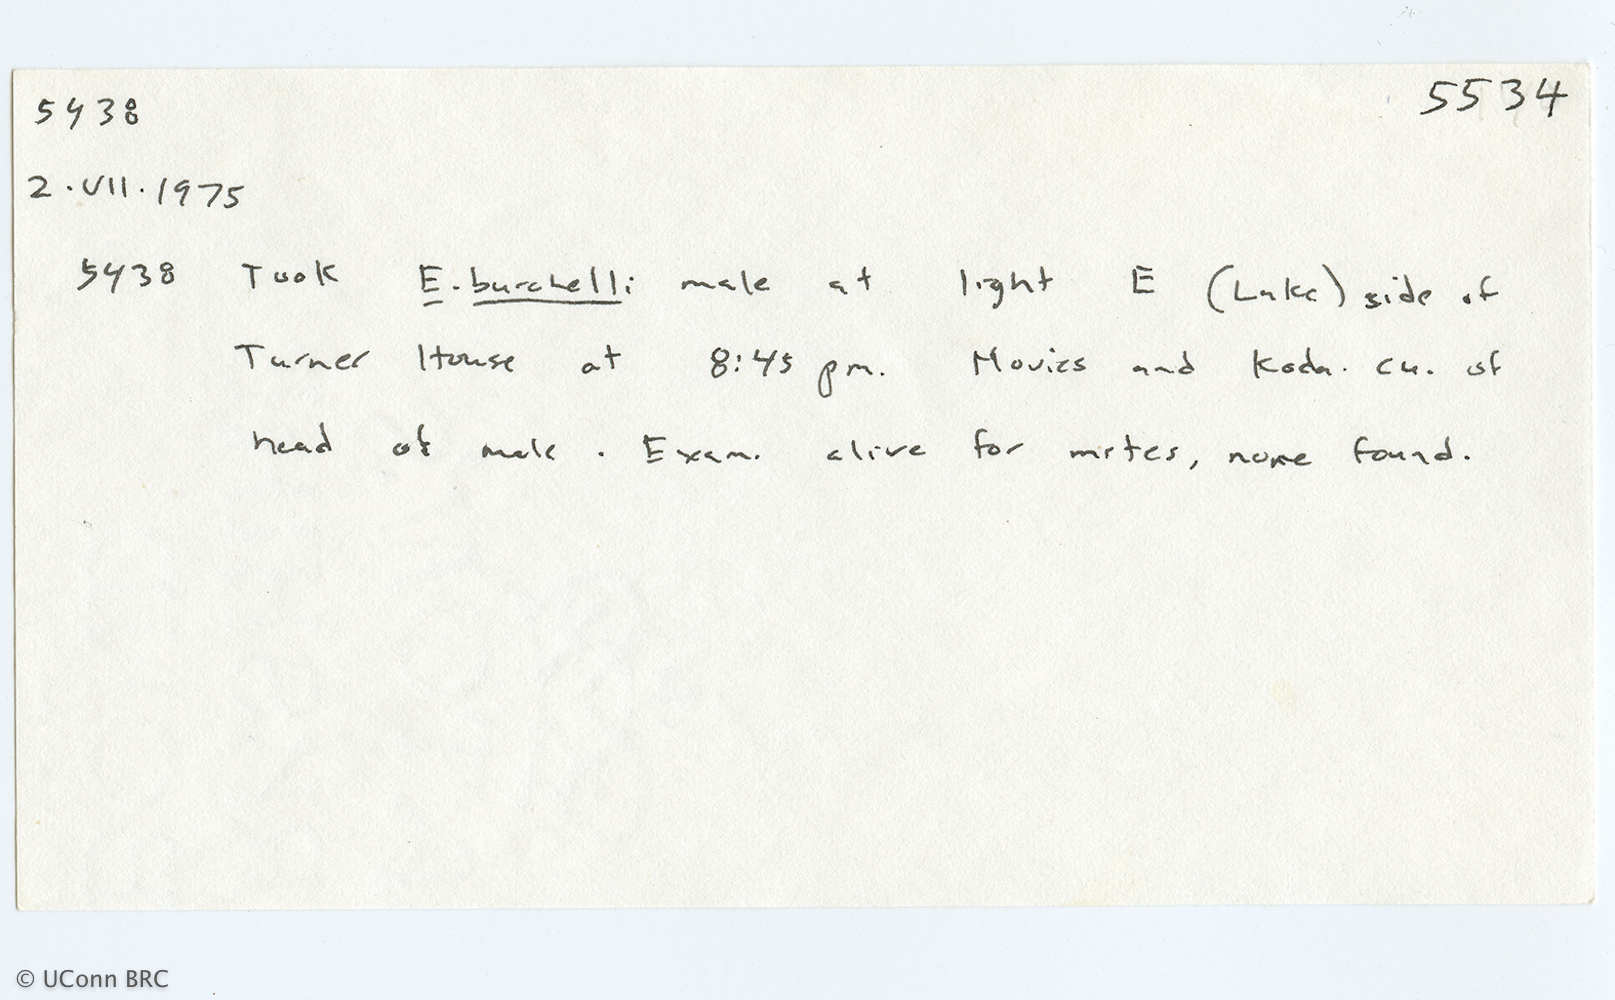 5438
5534
2.VII.1975
5438 Took E. burchelli male at light E (Lake) side of
Turner House at 8:45 pm. Movies and Koda. cu. of
head of male. Exam. alive for mites, none found.
© UConn BRC